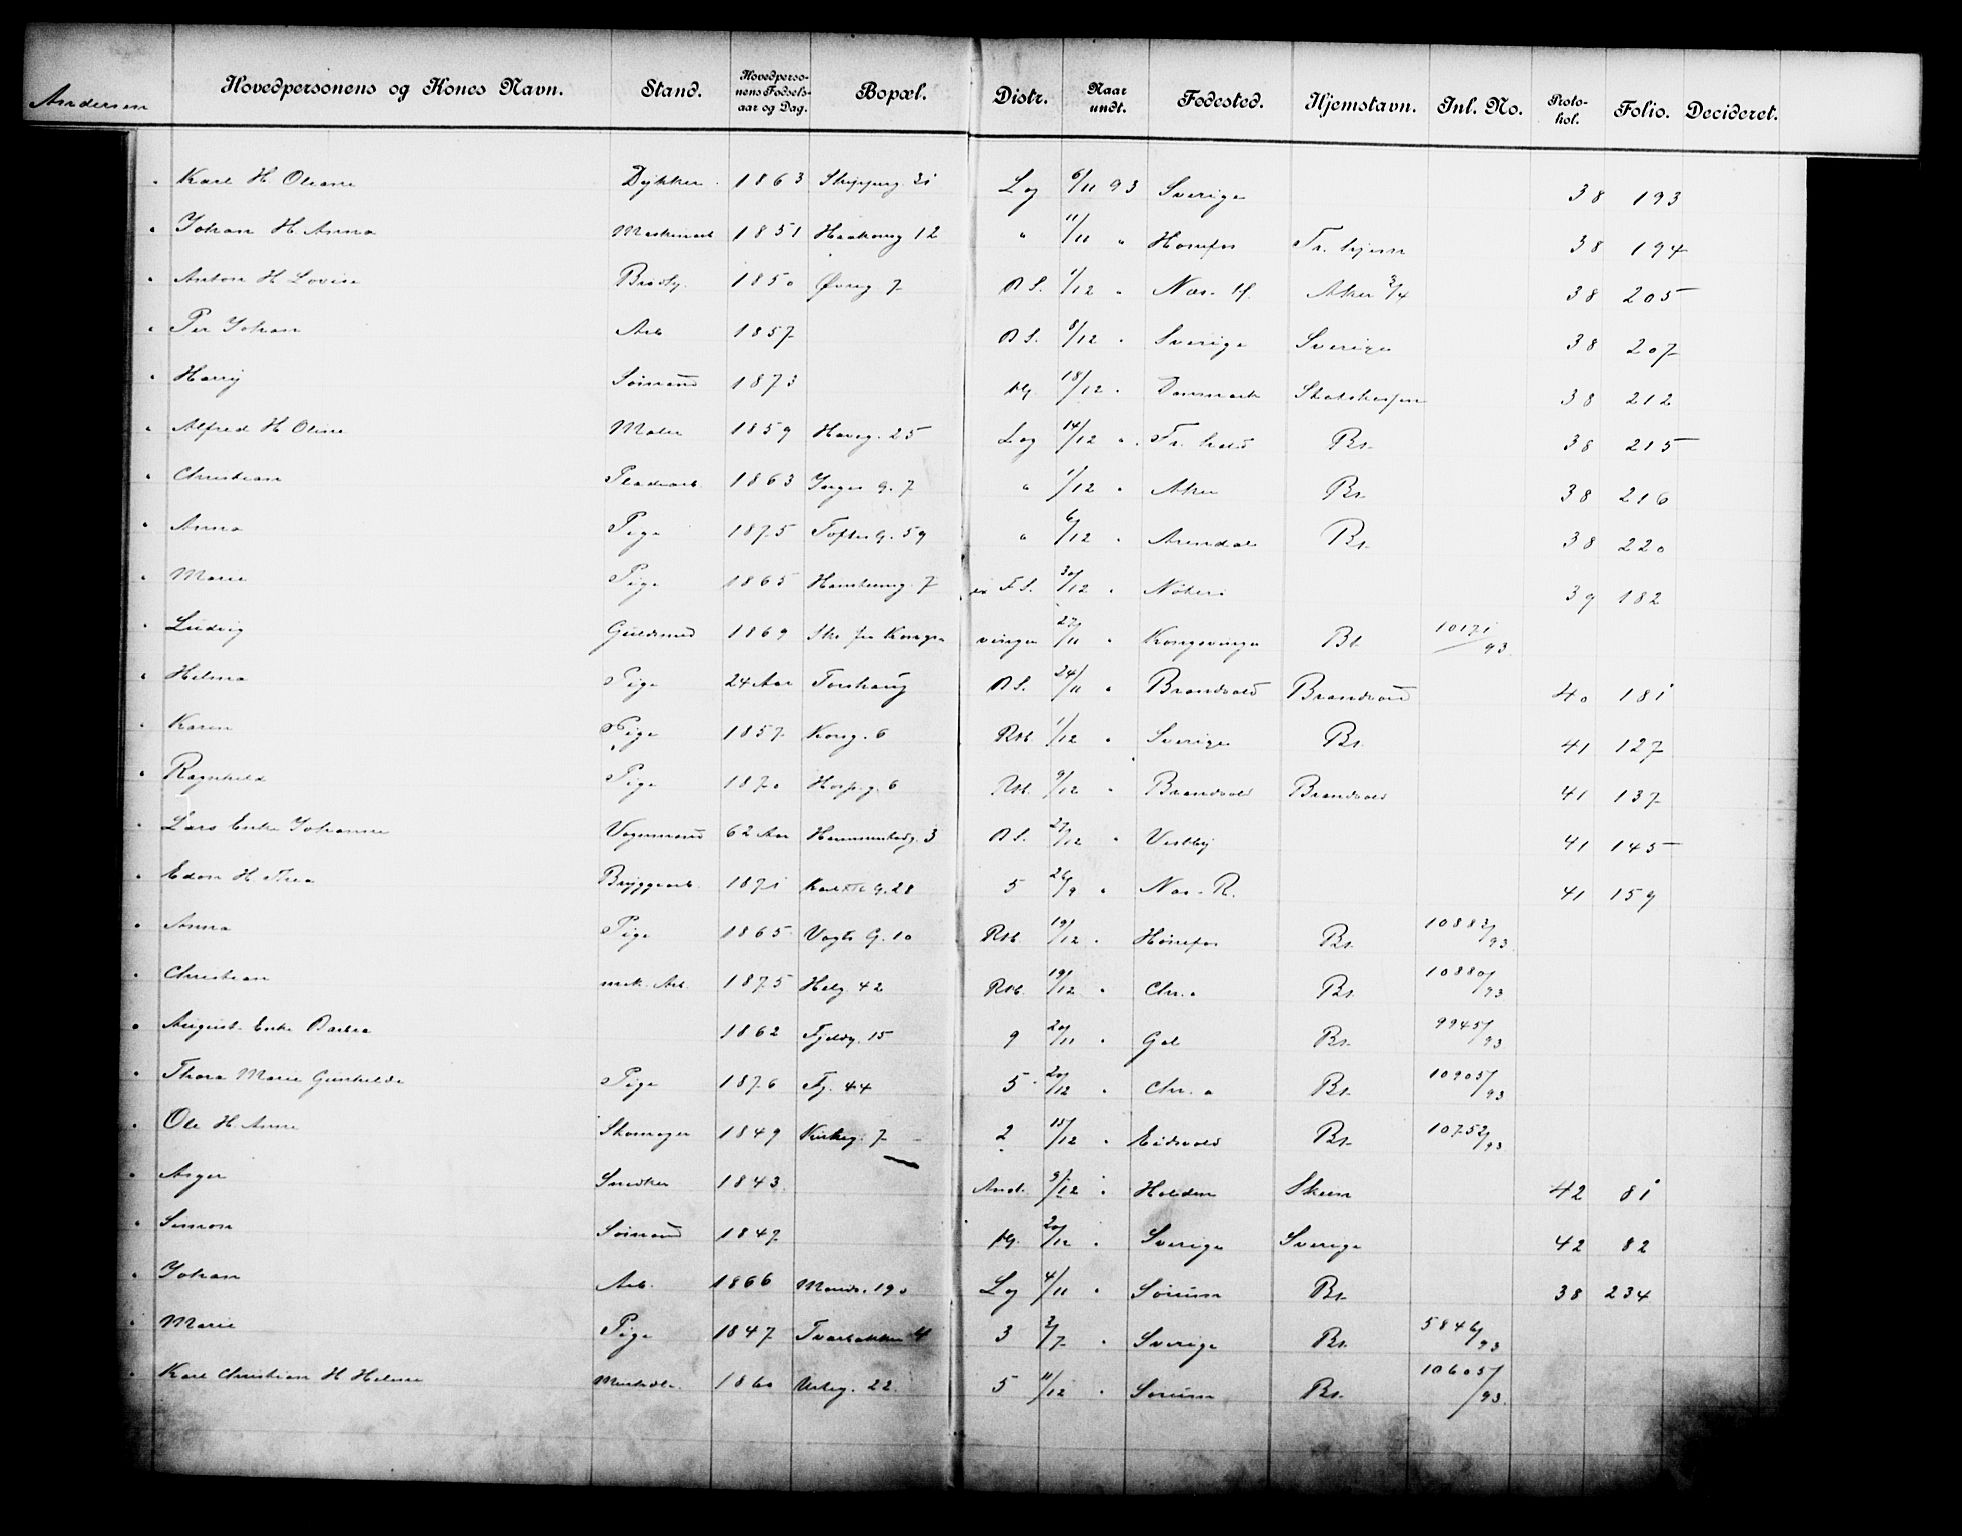 Andersen
Hovedpersonens og Kones Navn. Stand. Hovedpersonens Fødselsaar og Dag. Bopæl. Distr. Naar undt. Fødested. Hjemstavn. Inl. No. Protokol. Folio. Decideret.
Karl H. Oleane Dykker 1863 Skipperg 31 Log 6/11 93 Sverige 38 193
Johan H. Anna Maskinarb 1851 Haakonsg 12 " 11/11 " Hønefos Tr. hjem 38 194
Anton H Lovise 1850 Øvreg 7 B S. 1/12 " Næs. H. Aker 3/4 38 205
Per Johan Arb 1857 B S. 8/12 " Sverige Sverige 38 207
Harry Sømand 1873 18/12 " Danmark 38 212
Alfred H Oline Maler 1859 Haveg. 25 Log 14/12 " Fr. hald Bt. 38 215
Christian Pladearb. 1863 Inges G. 7 " 1/12 " Aker Bt. 38 216
Anna Pige 1875 Toftes G. 59 " 6/12 " Arendal Bt. 38 220
Marie Pige 1865 7 F S. 30/12 " 39 182
Ludvig Guldsmed 1869 Ske fra Kongsvinger 27/11 " Kongsvinger Bt. 10171/93
Helma Pige 24 Aar Torshaug B S. 24/11 " Brandvold Brandvold 40 181
Karen Pige 1857 Kong. 6 Rst. 1/12 " Sverige Bt. 41 127
Ragnhild Pige 1870 Hosp. g. 6 Rst. 9/12 " Brandvold Brandvold 41 137
Lars Enke Johanne Vognmand 62 Aar Hammersborg. 3 B S. 27/12 " Vestby 41 145
Edon H. Thea Bryggearb. 1871 Karl XII G. 28 5 26/9 " Næs. R. 41 159
Anna Pige 1865 Vogts G. 10 Rst. 19/12 " Hønefos Bt. 10883/93
Christian mek. Arb. 1875 Helg 42 Rst. 19/12 " Chr.a Bt. 10880/93
August. Enke Barbra 1862 Fjeldg. 15 9 20/11 " Gol Bt. 9945/93
Thora Marie Gunhilda Pige 1876 Tg. 44 5 20/12 " Chr. a Bt. 10905/93
Ole H. Anne Skomager 1849 Kirkeg. 7 2 15/12 " Eidsvold Bt. 10752/93
Asger Snedker 1843 And. 9/12 " Holden Skien 42 81
Simon Sømand 1847 20/12 " Sverige Sverige 42 82
Johan Arb. 1866 Marids. 190 Log 4/11 " Sørum Bt. 38 234
Marie Pige 1847 Tværbakken 4 3 3/7 " Sverige Bt. 5846/93
Karl Christian H Helene 1860 Urteg. 22. 5 11/12 " Sørum Bt. 10605/93